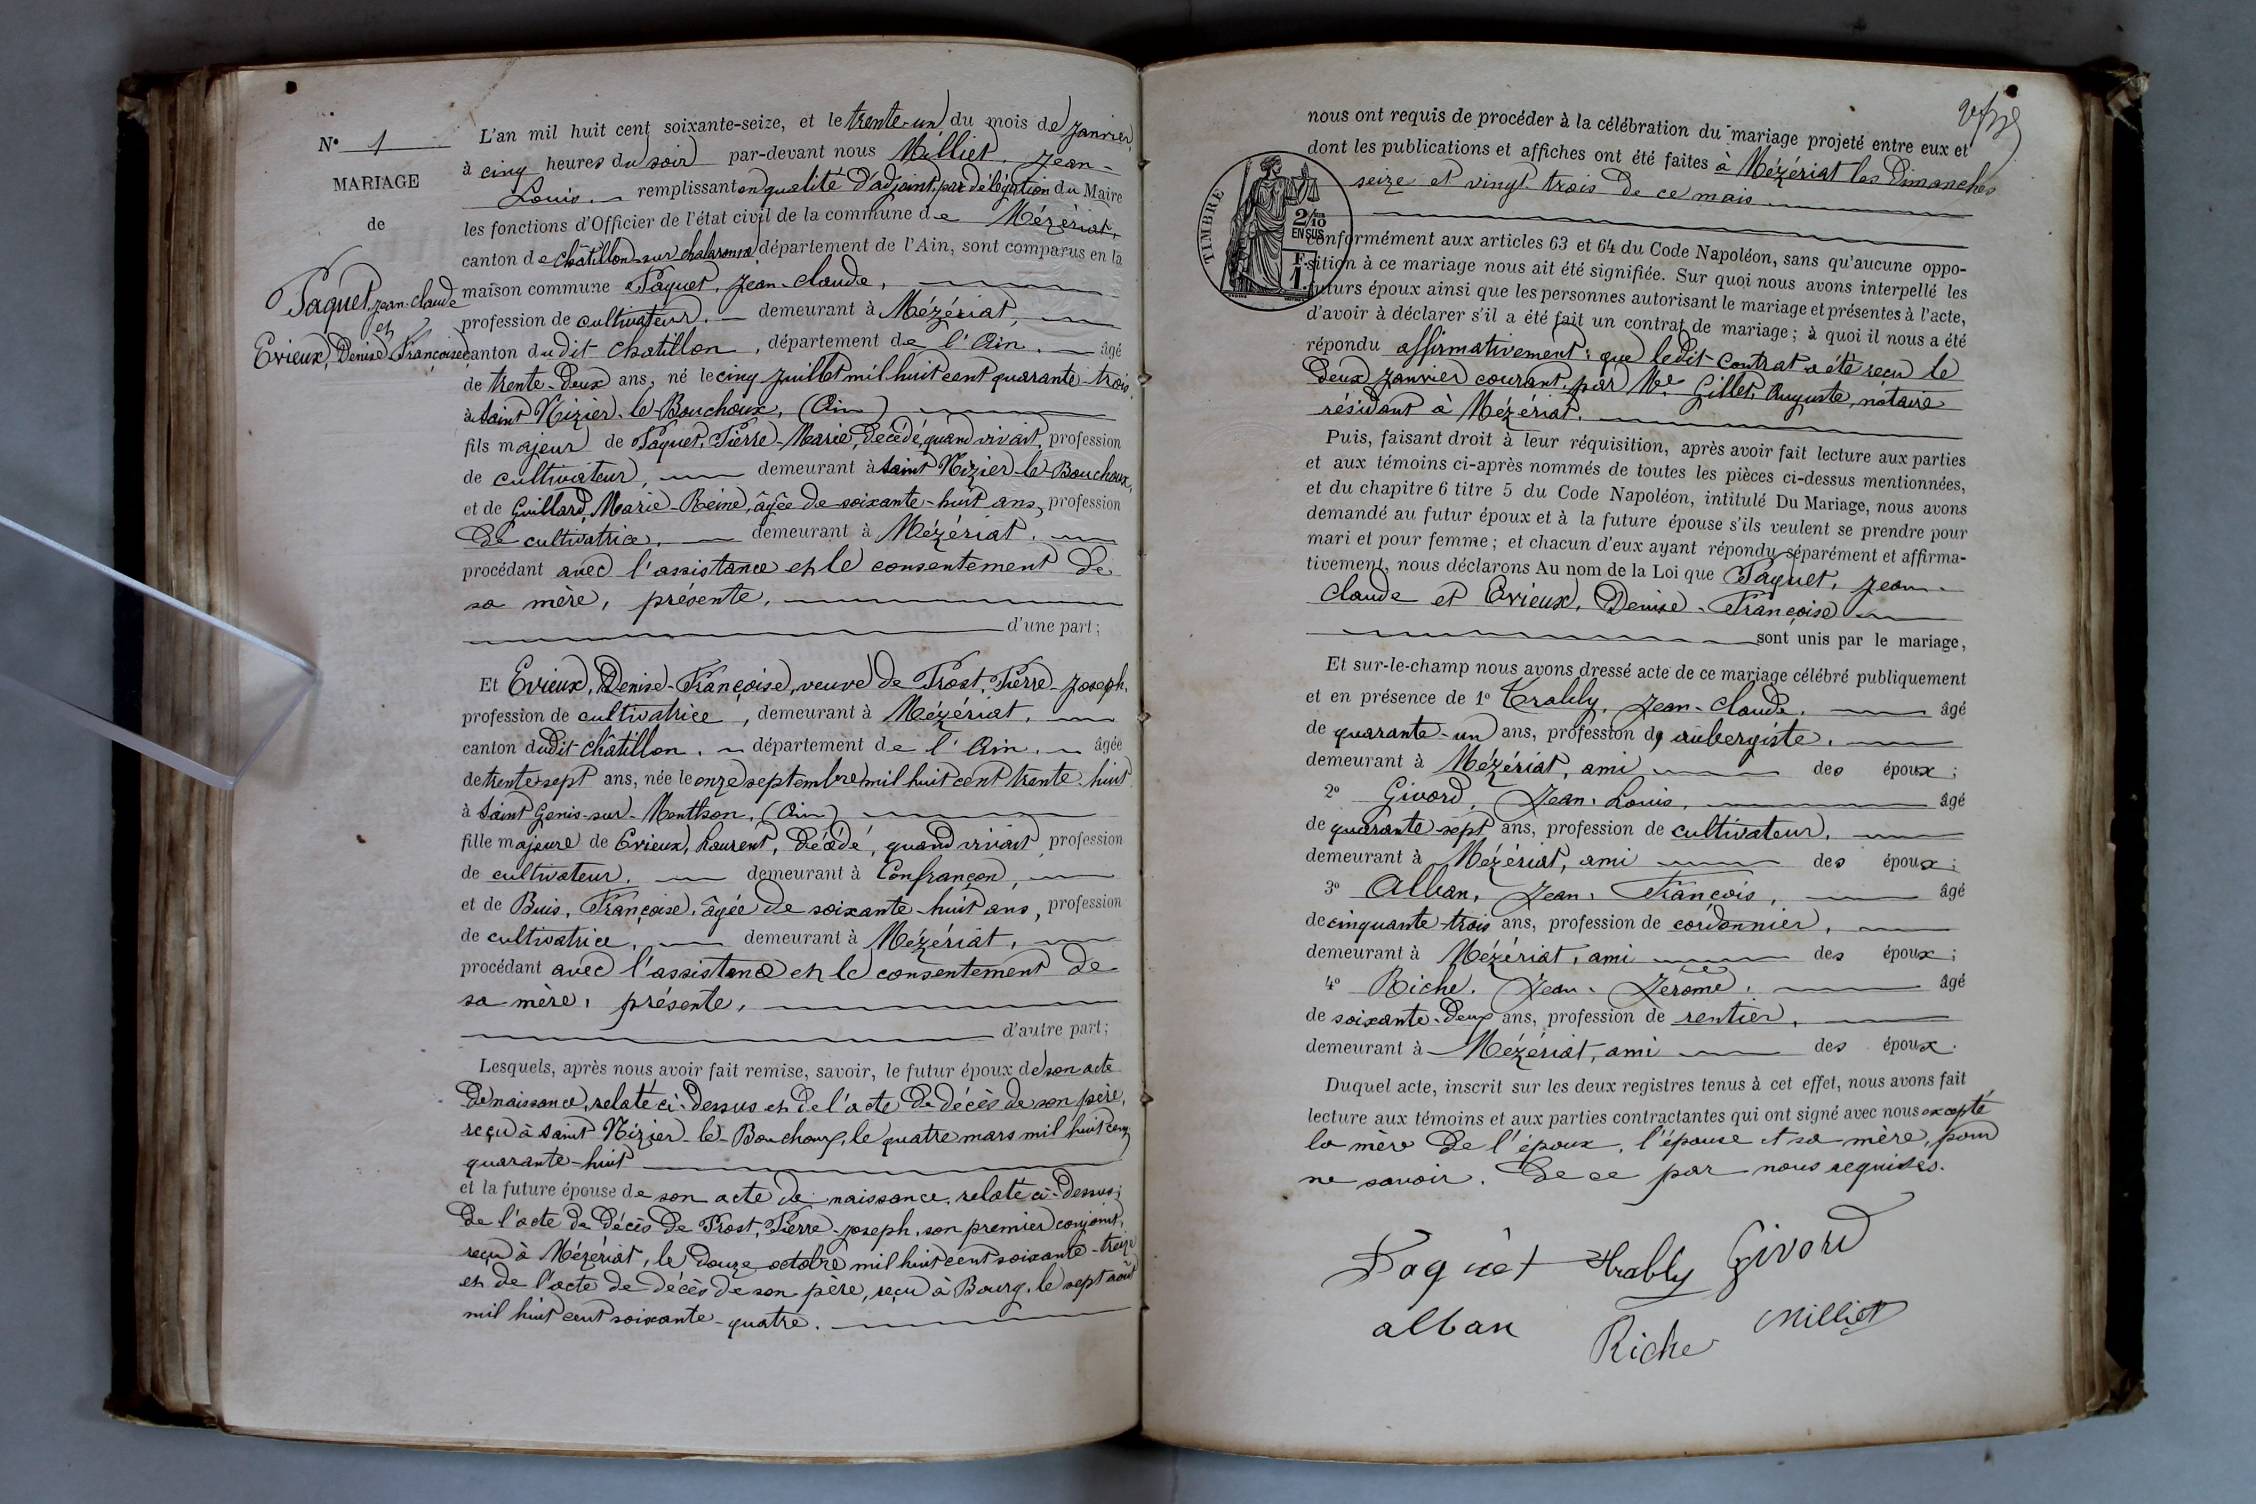 N° 1
MARIAGE
de
Paquet, Jean-Claude
et
Evieux, Denise-Françoise
L'an mil huit cent soixante-seize, et le trente-un du mois de Janvier,
à cinq heures du soir par-devant nous Milliet, Jean-
Louis, remplissant en qualité d'adjoint, par délégation du Maire
les fonctions d'Officier de l'état civil de la commune de Mézériat,
canton de Châtillon-sur-Chalaronne département de l'Ain, sont comparus en la
maison commune Paquet, Jean-Claude,
profession de cultivateur, demeurant à Mézériat,
canton dudit Chatillon, département de l'Ain, âgé
de trente-deux ans, né le cinq Juillet mil huit cent quarante-trois,
à Saint Nizier-le-Bouchoux, (Ain)
fils majeur de Paquet, Pierre-Marie, décédé, quand vivait, profession
de cultivateur, demeurant à Saint Nizier-le-Bouchoux,
et de Guillard, Marie-Reine, âgée de soixante-huit ans, profession
de cultivatrice, demeurant à Mézériat,
procédant avec l'assistance et le consentement de
sa mère, présente,
d'une part;
Et Evieux, Denise-Françoise, veuve de Prost, Pierre-Joseph,
profession de cultivatrice, demeurant à Mézériat,
canton dudit Châtillon, département de l'Ain, âgée
de trente-sept ans, née le onze septembre mil huit cent trente-huit
à Saint Genis-sur-Menthon, (Ain)
fille majeure de Evieux, Laurent, décédé, quand vivait profession
de cultivateur, demeurant à Confrançon,
et de Buis, Françoise, âgée de soixante-huit ans, profession
de cultivatrice, demeurant à Mézériat,
procédant avec l'assistance et le consentement de
sa mère, présente,
d'autre part;
Lesquels, après nous avoir fait remise, savoir, le futur époux de son acte
de naissance, relaté ci-dessus et de l'acte de décès de son père,
reçu à Saint Nizier-le-Bouchoux, le quatre mars mil huit cent
quarante-huit
et la future épouse de son acte de naissance, relaté ci-dessus;
de l'acte de décès de Prost, Pierre-Joseph, son premier conjoint,
reçu à Mézériat, le douze octobre mil huit cent soixante-treize
et de l'acte de décès de son père, reçu à Bourg, le sept août
mil huit cent soixante-quatre.
nous ont requis de procéder à la célébration du mariage projeté entre eux et
dont les publications et affiches ont été faites à Mézériat les Dimanches
seize et vingt-trois de ce mois
TIMBRE
2/10
EN SUS
F.
1.
conformément aux articles 63 et 64 du Code Napoléon, sans qu'aucune oppo-
sition à ce mariage nous ait été signifiée. Sur quoi nous avons interpellé les
futurs époux ainsi que les personnes autorisant le mariage et présentes à l'acte,
d'avoir à déclarer s'il a été fait un contrat de mariage; à quoi il nous a été
répondu affirmativement; que ledit contrat a été reçu le
deux Janvier courant, par Me Gillet, Auguste, notaire
résidant à Mézériat.
Puis, faisant droit à leur réquisition, après avoir fait lecture aux parties
et aux témoins ci-après nommés de toutes les pièces ci-dessus mentionnées,
et du chapitre 6 titre 5 du Code Napoléon, intitulé Du Mariage, nous avons
demandé au futur époux et à la future épouse s'ils veulent se prendre pour
mari et pour femme; et chacun d'eux ayant répondu séparément et affirma-
tivement, nous déclarons Au nom de la Loi que Paquet, Jean-
Claude et Evieux, Denise-Françoise
sont unis par le mariage,
Et sur-le-champ nous avons dressé acte de ce mariage célébré publiquement
et en présence de 1° Trably, Jean-Claude, âgé
de quarante-un ans, profession d'aubergiste,
demeurant à Mézériat, ami des époux;
2° Givord, Jean-Louis, âgé
de quarante sept ans, profession de cultivateur,
demeurant à Mézériat, ami des époux;
3° Alban, Jean-François, âgé
de cinquante-trois ans, profession de cordonnier,
demeurant à Mézériat, ami des époux;
4° Riche, Jean-Jérôme, âgé
de soixante-deux ans, profession de rentier,
demeurant à Mézériat, ami des époux.
Duquel acte, inscrit sur les deux registres tenus à cet effet, nous avons fait
lecture aux témoins et aux parties contractantes qui ont signé avec nous excepté
la mère de l'époux, l'épouse et sa mère, pour
ne savoir. De ce par nous requises.
Paquet Trably Givord
alban Riche Milliet